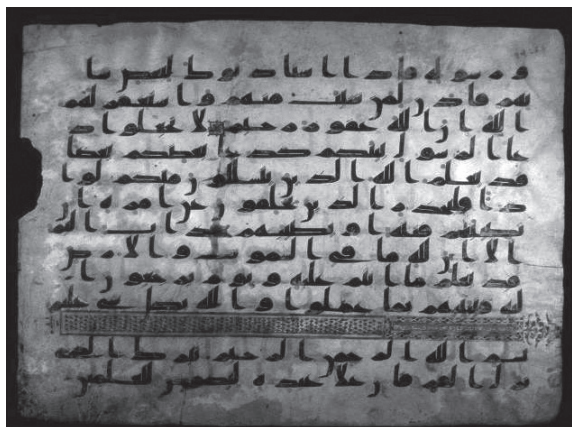 ورسوله فاذا استاذنوك لبعض شا
نهم فاذن لمن شئت منهم واستغفر لهم
الله ان الله غفور رحيم لا تجعلوا د
عا الرسول بينكم كدعا بعضكم بعضا
قد يعلم الله الذين يتسللون منكم لوا
ذا فليحذر الذين يخالفون عن امره ان
تصيبهم فتنه او يصيبهم عذاب اليم
الا ان لله ما في السموت والارض
قد يعلم ما انتم عليه ويوم يرجعون ا
ليه فينبئهم بما عملوا والله بكل شي عليم
بسم الله الرحمن الرحيم تبرك الذي
نزل الفرقان على عبده ليكون للعلمين